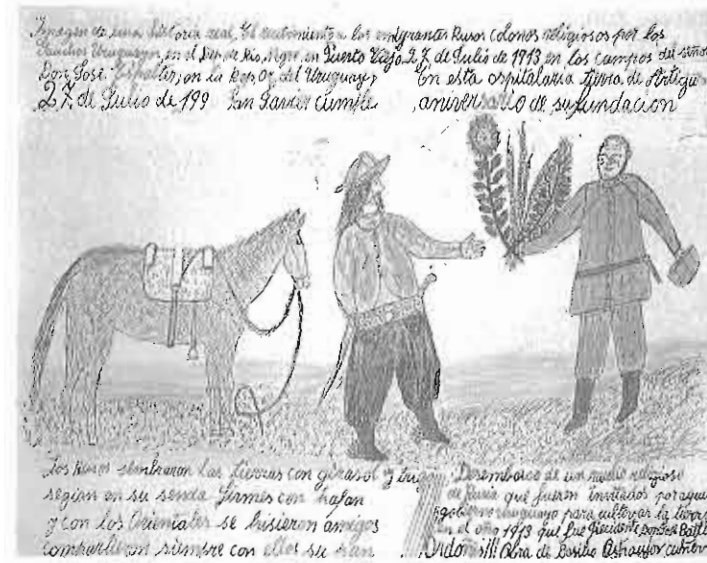 Imagen de una historia real, El recibimiento a los emigrantes Rusos Colonos religiosos por los
Gauchos Uruguayos, en el Dep. de Río, Negro, en Puerto Viejo 27, de Julio de 1913 en los campos del señor
Don, José: Espalter, en la Rep. Or, del Uruguay, En esta ospitalaria tierra de Artigas
27 de Julio de 199 San Javier cumple aniversario de su fundacion
Los Rusos sembraron las tierras con girasol y trigo
segían en su senda firmes con
y con los Orientales se hisieron amigos
compartieron siempre con ellos su
Desembarco de un religioso
de Rusia que fueron invitados por aquel
gobierno uruguayo para cultivar la tierra
en el año 1913 que fue Presidente, Don José Batlle
Ordoñes!!! Obra de Basilio